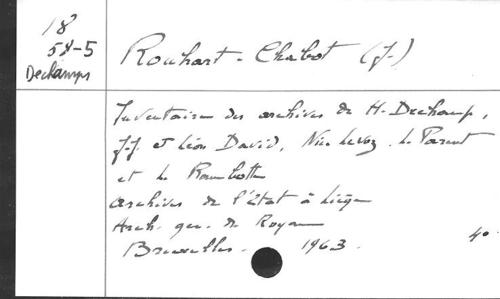 18
54-5
Dechamps
Rouhart-Chabot (J.)
Inventaires des archives de H. Dechamps,
J.J. et Léon David, Nic. Levoz, Le Parent
et de Rambotte
Archives de l'état à Liège
Arch. gen. du Royaume
Bruxelles - 1963.
40